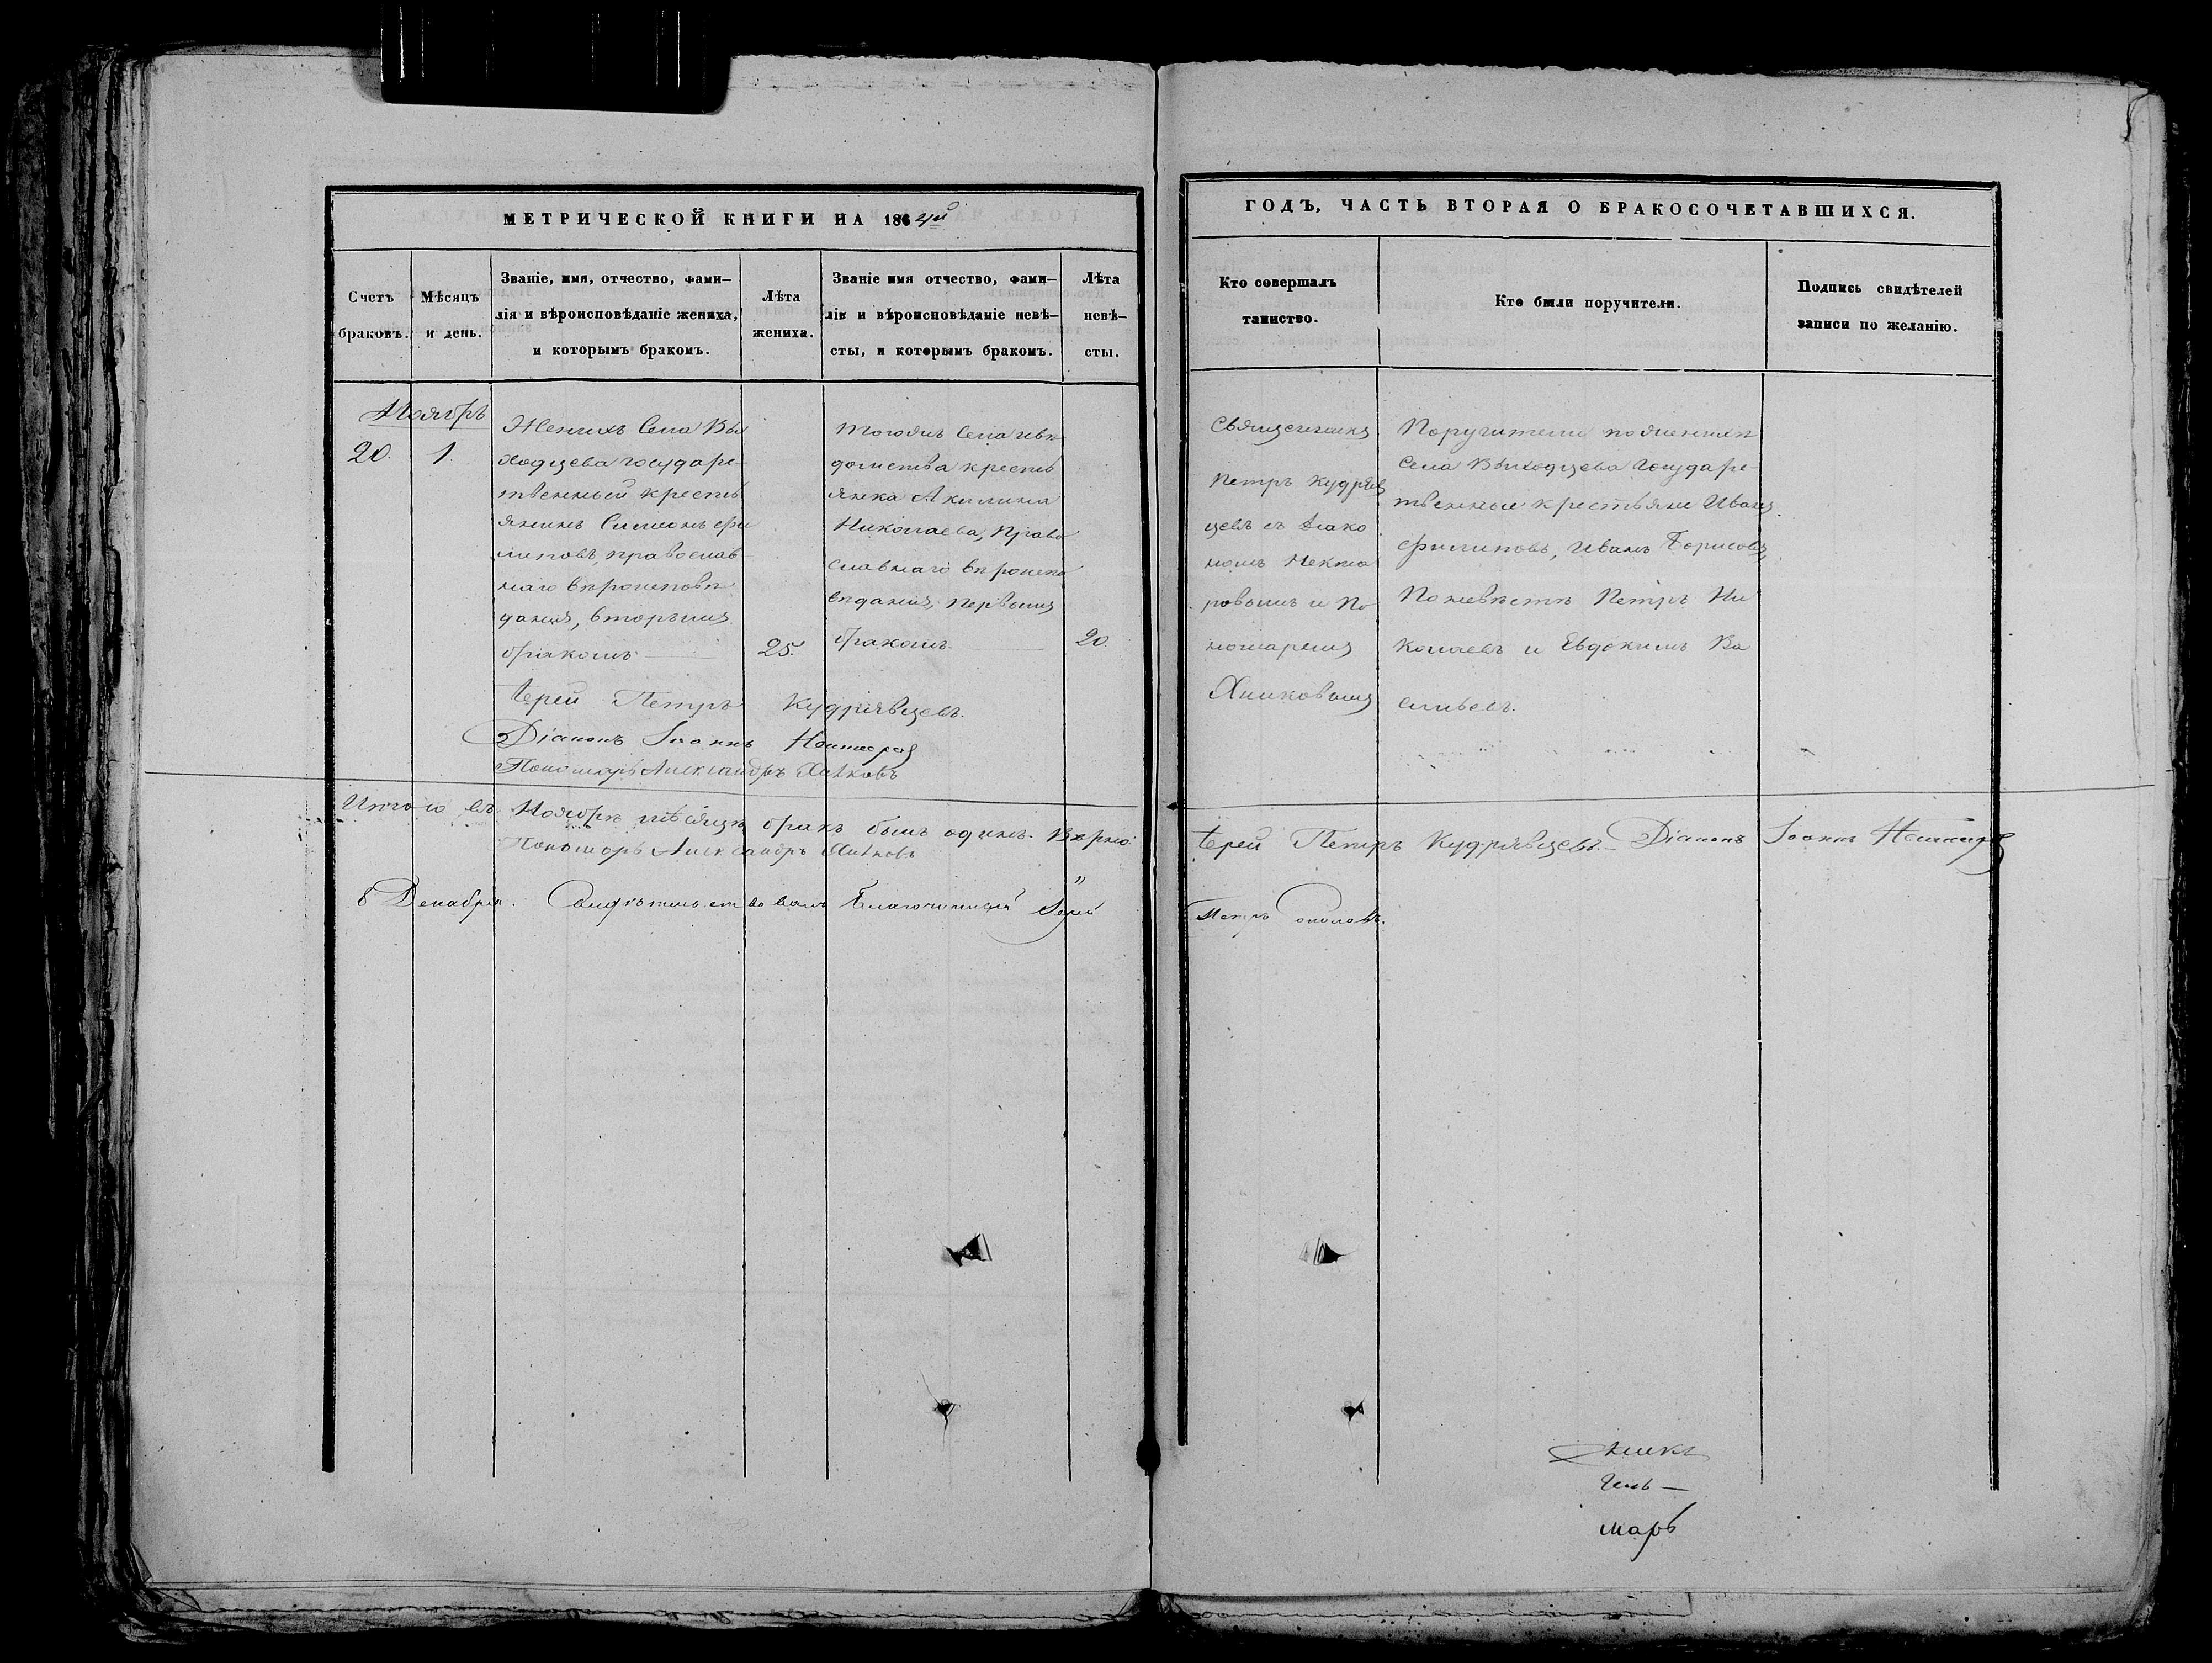 МЕТРИЧЕСКОЙ КНИГИ НА 186
ГОДЪ, ЧАСТЬ ВТОРАЯ О БРАКОСОЧЕТАВШИХСЯ.
Счетъ
браковъ.
Мѣсяцъ
и день.
Званіе, имя, отчество, фами–
лія и вѣроисповѣданіе жениха,
и которымъ бракомъ.
Лѣта
жениха.
Званіе имя отчество, фами–
лія и вѣроисповѣданіе невѣ–
сты, и которымъ бракомъ.
Лѣта
невѣ–
сты.
Кто совершалъ
таинство.
Кто были поручители.
Подпись свидѣтелей
записи по желанію.
Ноябрь
20.
1.
Женихъ Села Вы
ходцева государс
твенный кресть
янинъ Симеонъ Фи
липовъ, православ
наго вѣроисповѣ
данія, вторымъ
бракомъ
25.
тогожъ Села и вѣ
домства кресть
янка Акилина
Николаева, Право
славнаго вѣроиспо
вѣданія, первымъ
бракомъ.
20.
Священникъ
Петръ Кудряв
цевъ съ Діако
номъ Некта
ровымъ и По
номаремъ
Хилковымъ
Поручители по женихѣ
Села Выходцева Государс
твенные крестьяне Иванъ
Филиповъ, Иванъ Борисовъ,
По невѣстѣ Петръ Ни
колаевъ и Евдокимъ Ва
сильевъ.
Іерей Петръ Кудрявцевъ.
Діаконъ Іоаннъ
Пономарь Александръ Хилковъ
Итого въ Ноябрѣ мѣсяцѣ бракъ былъ одинъ. Вѣрно:
Іерей Петръ Кудрявцевъ. Діаконъ Іоаннъ
Пономарь Александръ Хилковъ
8 Декабря. Свидѣтельствовалъ Благочинный Іерей
Петръ
марь